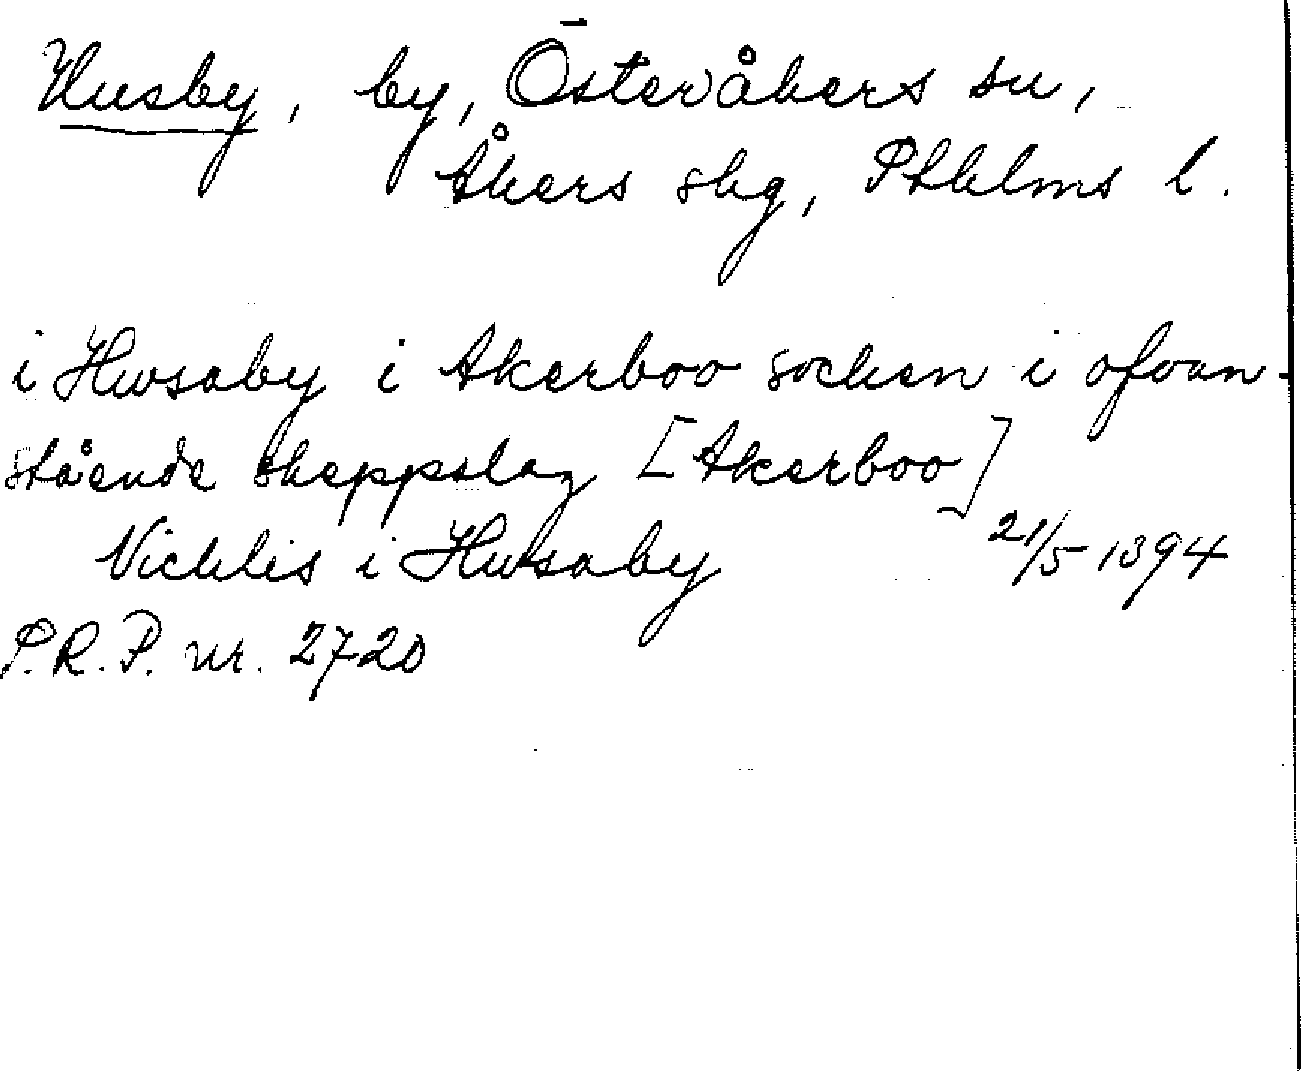 Husby, by, Österåkers sn,
Åkers skg, Sthlms l.
i Hwsaby i Akerboo socken i ofvan-
stående skeppslag [Akerboo]
Nicklis i Hwsaby 21/5 1394
S.R.P. nr. 2720